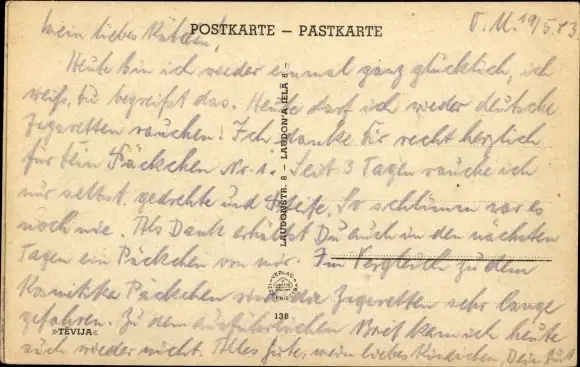 POSTKARTE – PASTKARTE
O. U. 19/5.43
Mein liebes Kätchen!
Heute bin ich wieder einmal ganz glücklich, ich
weiß, Du begreifst das. Heute darf ich wieder deutsche
Zigaretten rauchen! Ich danke Dir recht herzlich
für Dein Päckchen Nr. 1. Seit 3 Tagen rauche ich
nur selbst gedrehte und Pfeife. So schlimm war es
noch nie. Als Dank erhältst Du auch in den nächsten
Tagen ein Päckchen von mir. Im Vergleich zu dem
Kosmetika Päckchen sind die Zigaretten sehr lange
gefahren. Zu dem ausführlichen Brief kam ich heute
auch wieder nicht. Alles Gute, mein liebes Dein
LAUDONSTR. 8 – LAUDON'A IELĀ 8
138
»TĒVIJA«